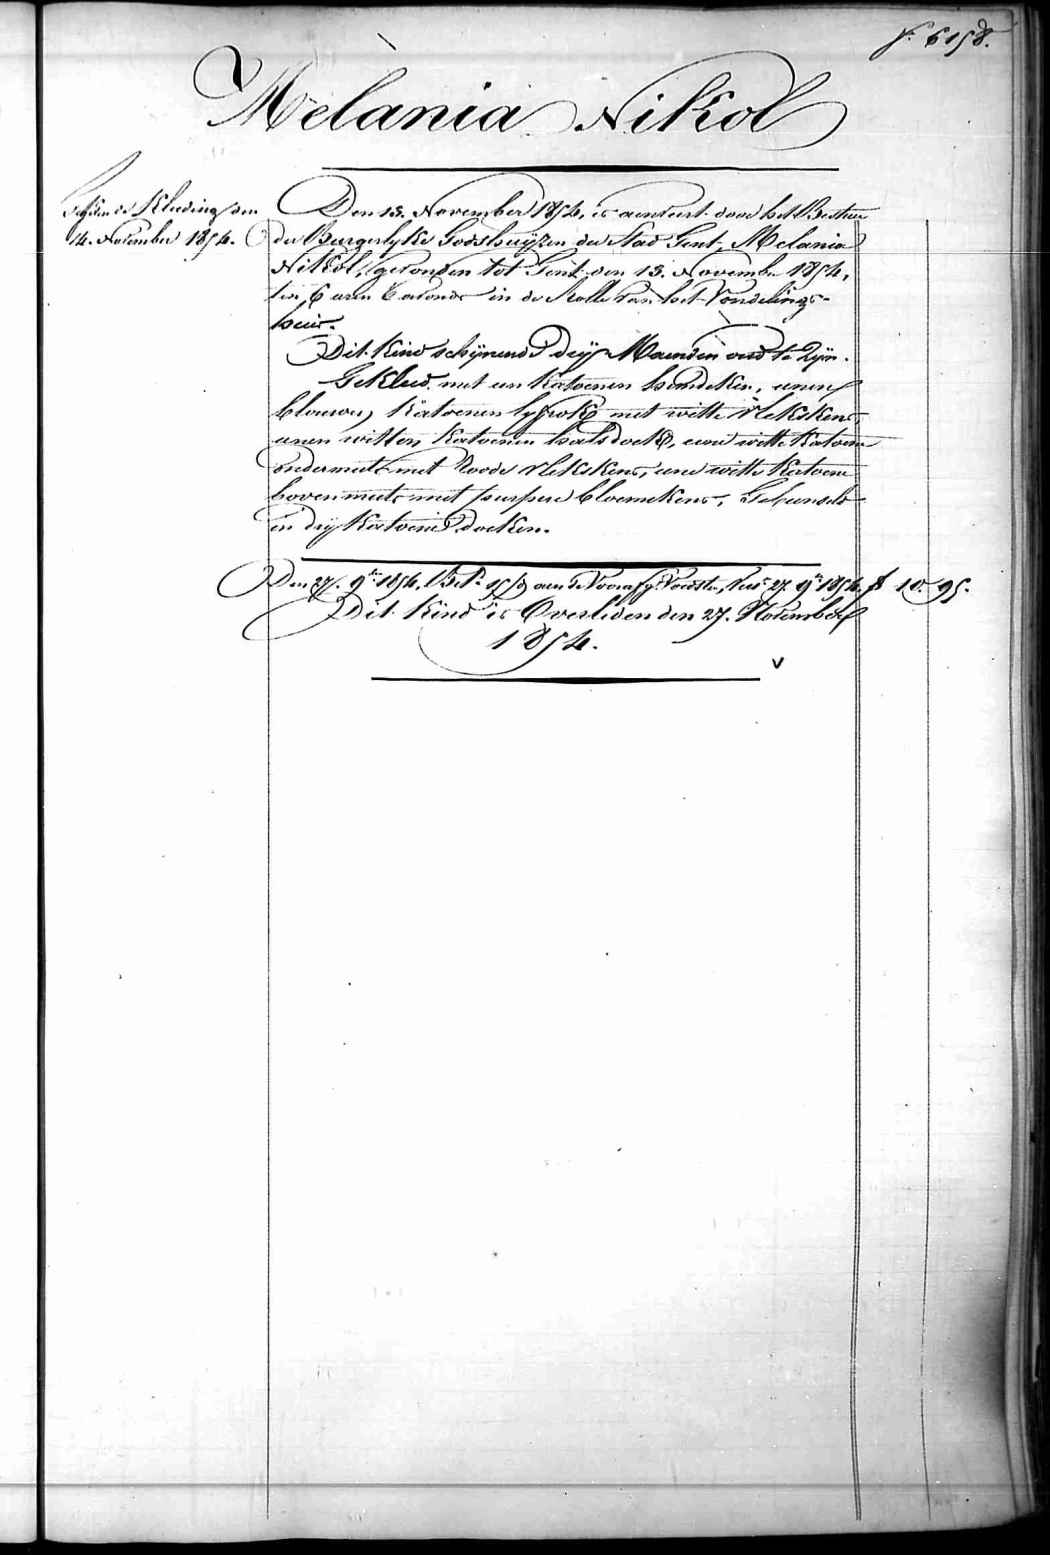 f. 6158.
Melania Nikol
de Kleeding den
14. November 1854.
Den 13. November 1854, is aenveert door het Bestuer
der Burgerlyke Godshuijzen der Stad Gent, Melania
Nikol, gevonden tot Gent den 13. November 1854,
ten 6 uren t'avonds in de Rolle van het Vondelings-
huis.
Dit Kind schijnende drij Maenden oud te zijn.
Gekleed met een Katoenen hemdeken, eenen
blauwen Katoenen lyfrok met witte vlekskens,
eenen witten Katoenen halsdoek, eene witte Katoene
ondermuts met Roode vlekskens, eene witte Katoene
bovenmuts met purpere bloemekens, Gebunseld
in drij Katoene doeken.
Den 27. 9ber 1854, Bet. aen de Voedster, 27. 9ber 1854. f 10. 95.
Dit Kind is Overleden den 27. November
1854.
v